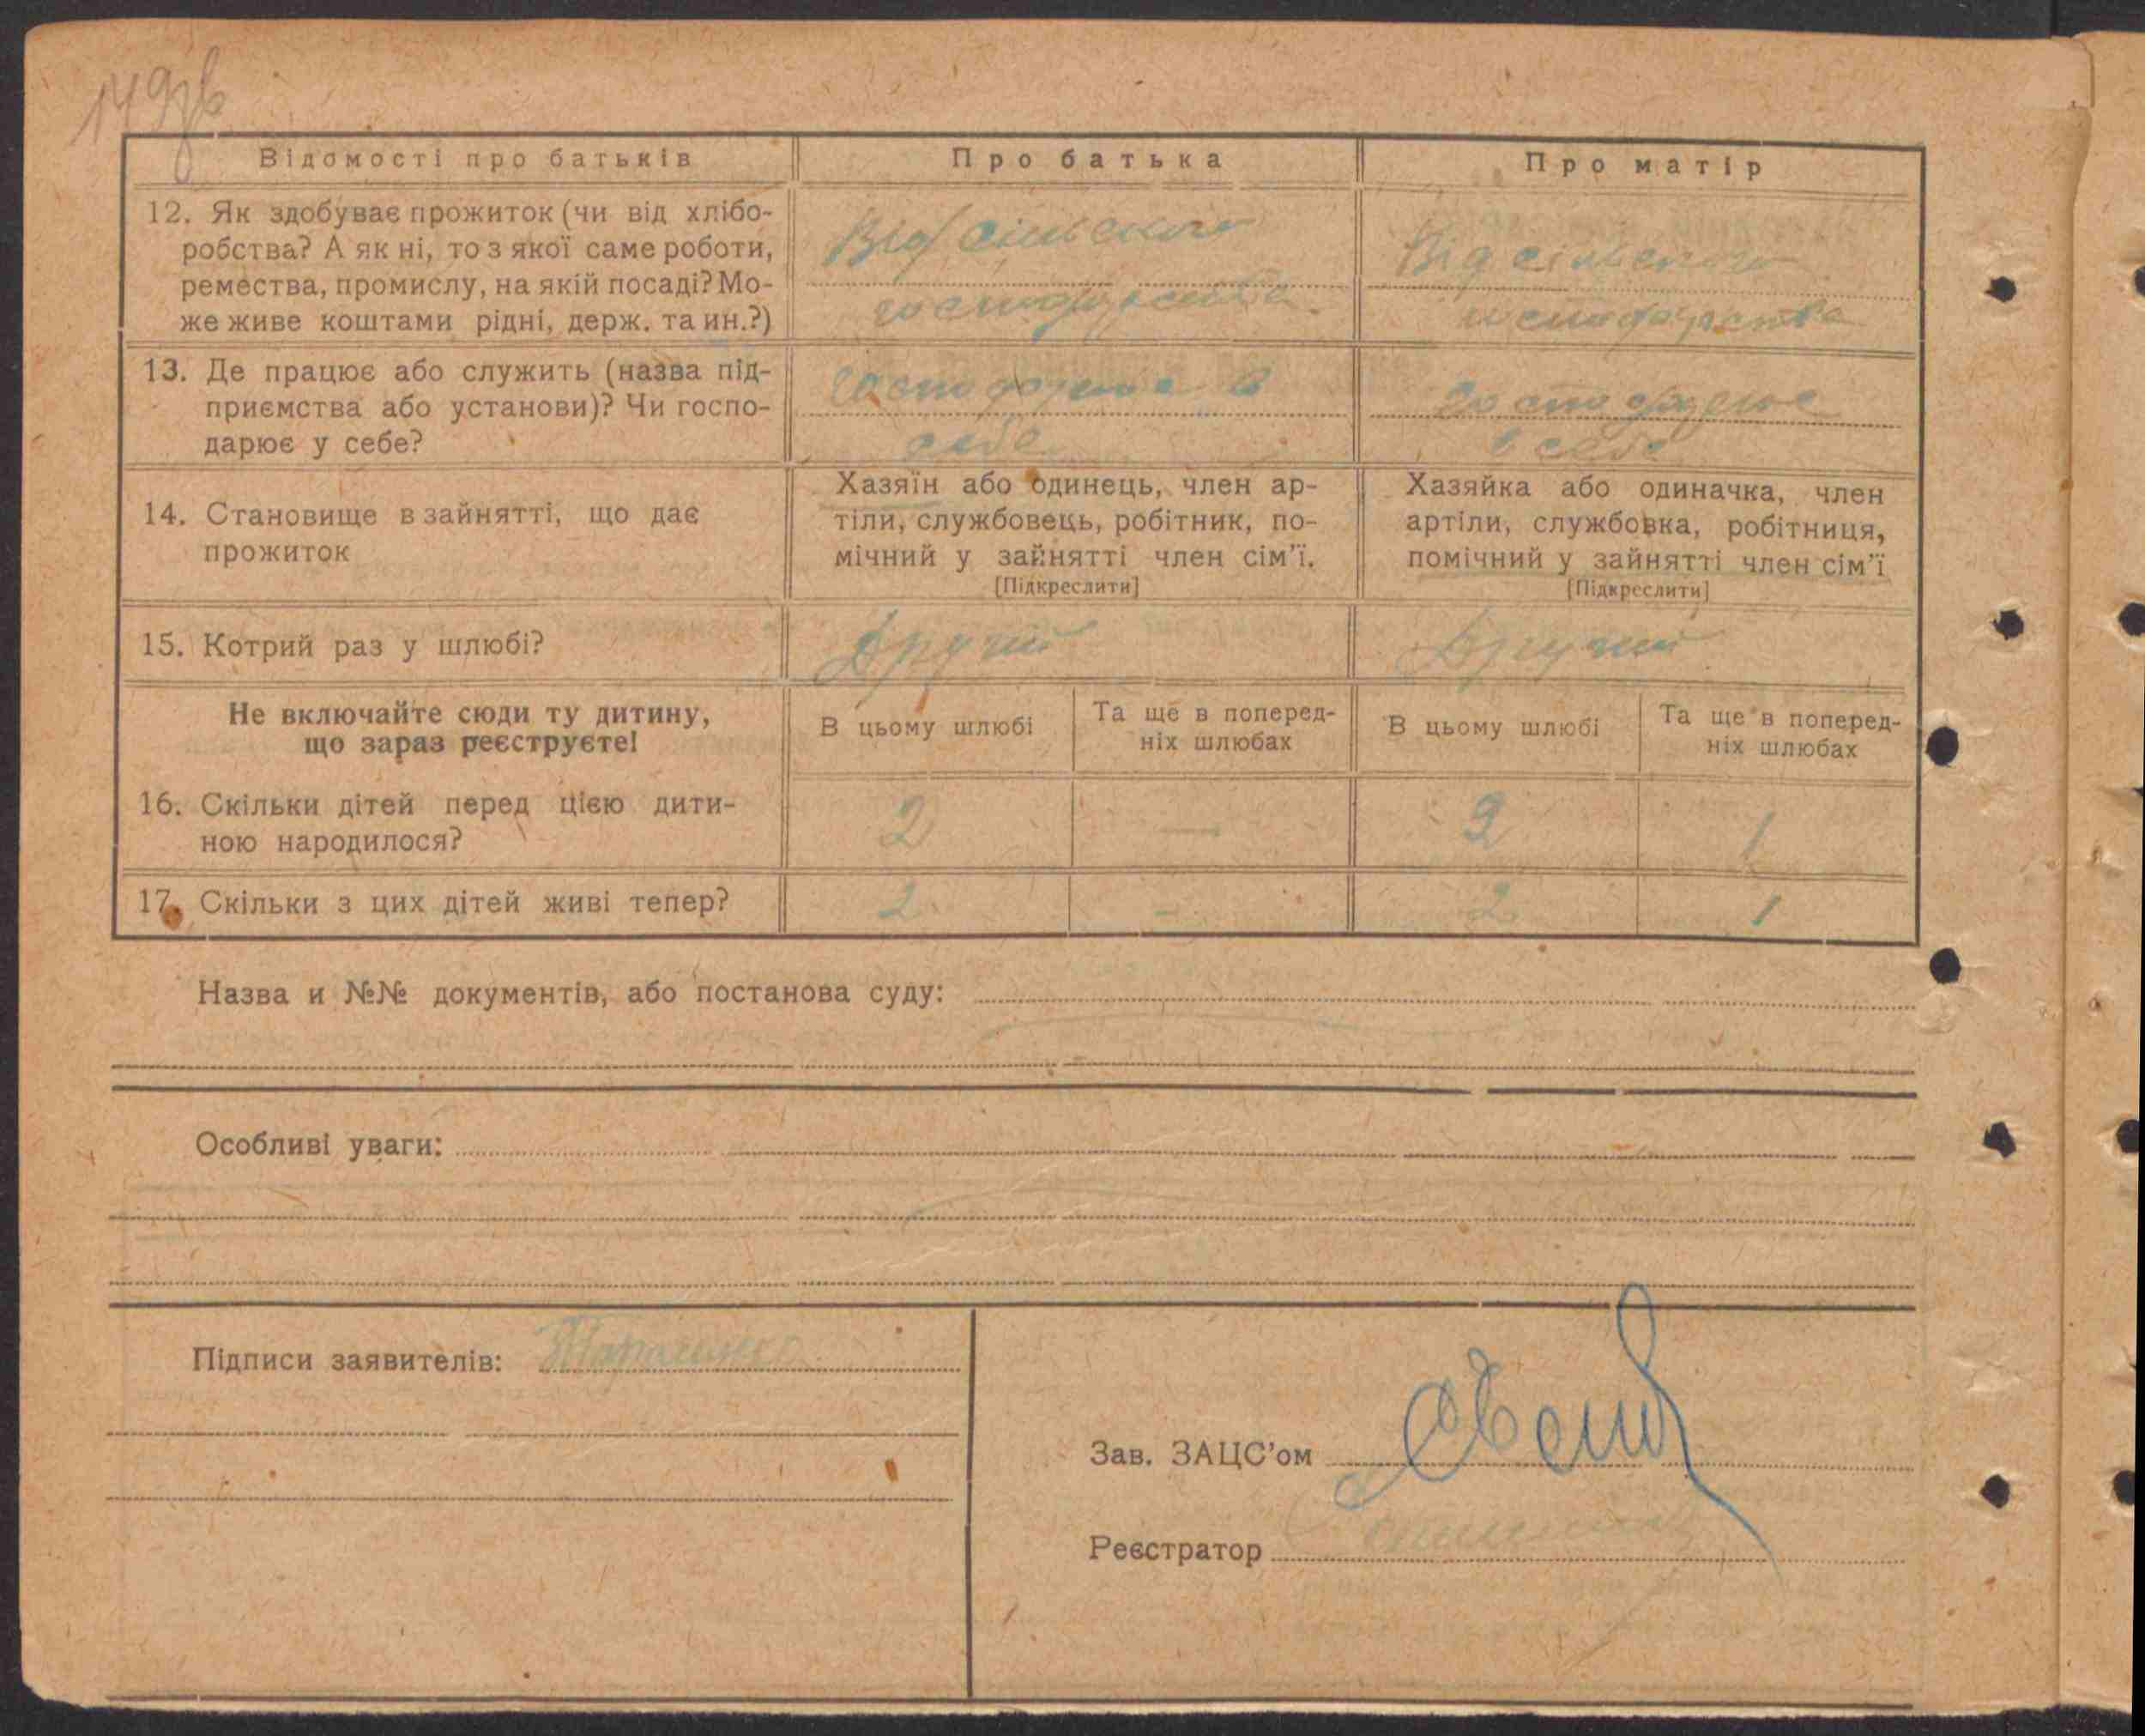 149зв
Відомості про батьків
Про батька
Про матір
12. Як здобуває прожиток (чи від хлібо-
робства? А як ні, то з якої саме роботи,
ремества, промислу, на якій посаді? Мо-
же живе коштами рідні, держ. та ин.?)
Від сільського
господарства
Від сільського
господарства
13. Де працює або служить (назва під-
приємства або установи)? Чи госпо-
дарює у себе?
Господарює в
себе
Господарює
в себе
14. Становище в зайнятті, що дає
прожиток
Хазяїн або одинець, член ар-
тіли, службовець, робітник, по-
мічний у зайнятті член сім'ї.
[Підкреслити]
Хазяйка або одиначка, член
артіли, службовка, робітниця,
помічний у зайнятті член сім'ї
[Підкреслити]
15. Котрий раз у шлюбі?
Другий
Другий
Не включайте сюди ту дитину,
що зараз реєструєте!
В цьому шлюбі
Та ще в поперед-
ніх шлюбах
В цьому шлюбі
Та ще в поперед-
ніх шлюбах
16. Скільки дітей перед цією дити-
ною народилося?
2 — 2 1
17. Скільки з цих дітей живі тепер?
2 - 2 1
Назва и №№ документів, або постанова суду:
Особливі уваги:
Підписи заявителів:
Зав. ЗАЦС'ом
Реєстратор